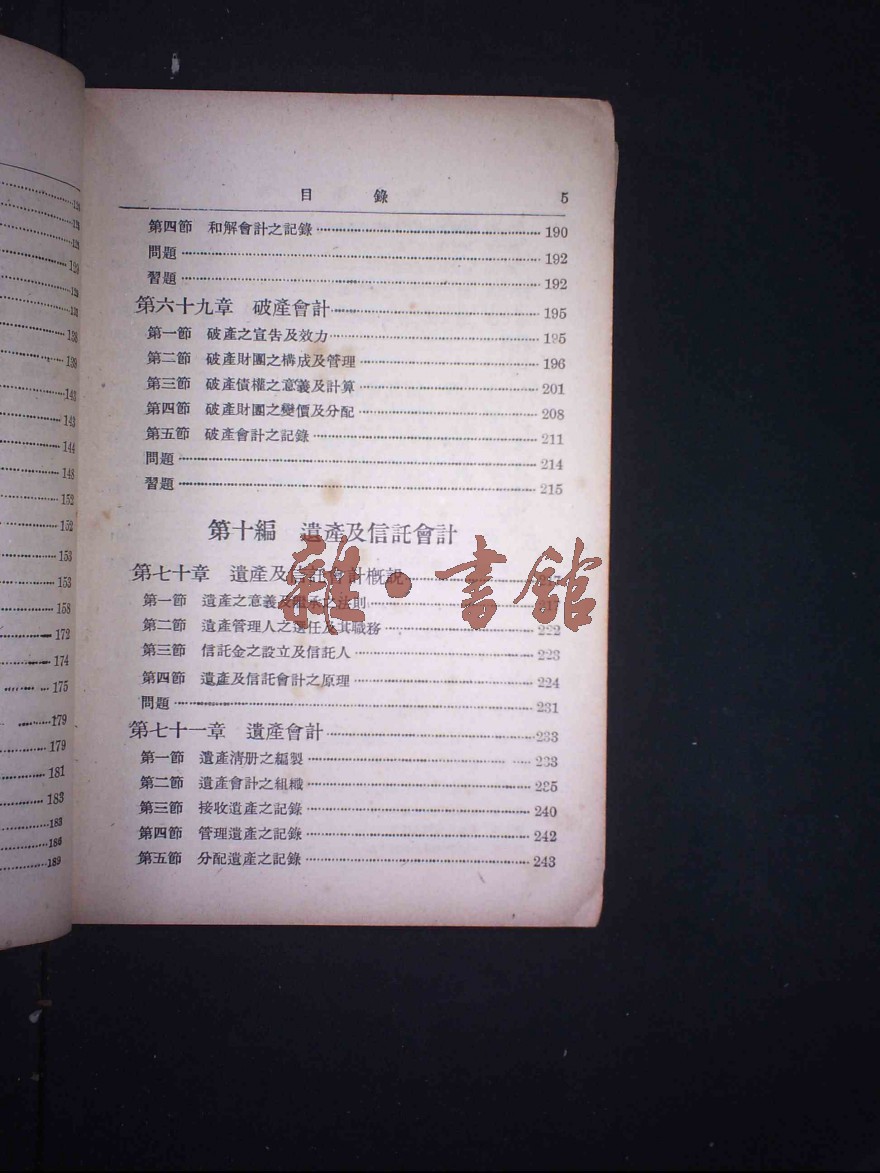 124
128
128
128
128
131
138
139
143
143
144
148
152
152
153
153
158
172
174
175
179
179
181
183
183
186
189
目 錄 5
第四節 和解會計之記錄 190
問題 192
習題 192
第六十九章 破產會計 195
第一節 破產之宣告及效力 195
第二節 破產財團之構成及管理 196
第三節 破產債權之意義及計算 201
第四節 破產財團之變價及分配 208
第五節 破產會計之記錄 211
問題 214
習題 215
第十編 遺產及信託會計
第七十章 遺產及信託會計概說 217
第一節 遺產之意義及繼承之法則 217
第二節 遺產管理人之選任及其職務 222
第三節 信託金之設立及信託人 223
第四節 遺產及信託會計之原理 224
問題 231
第七十一章 遺產會計 233
第一節 遺產淸册之編製 233
第二節 遺產會計之組織 235
第三節 接收遺產之記錄 240
第四節 管理遺產之記錄 242
第五節 分配遺產之記錄 243
雜·書館